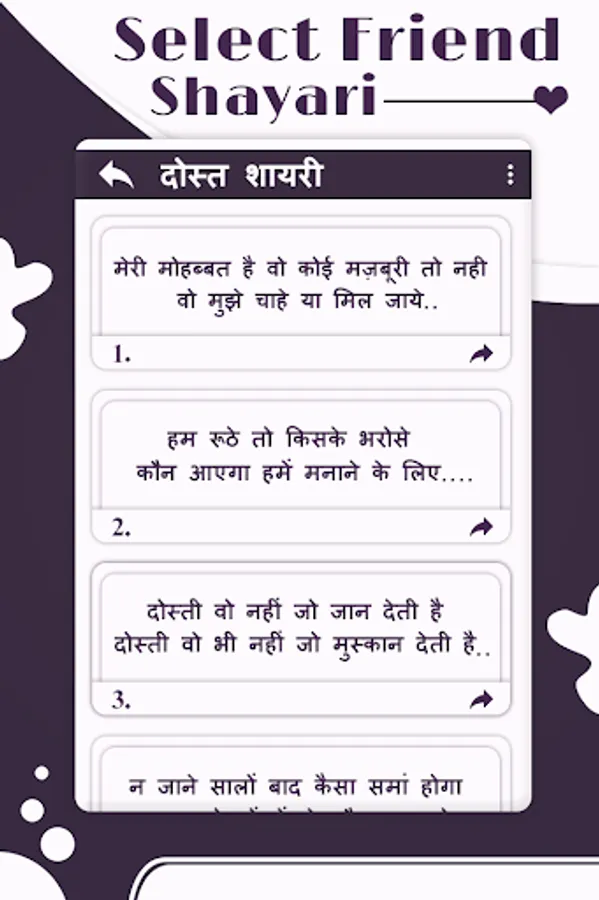 Select Friend
Shayari
दोस्त शायरी
मेरी मोहब्बत है वो कोई मज़बूरी तो नही
वो मुझे चाहे या मिल जाये..
1.
हम रूठे तो किसके भरोसे
कौन आएगा हमें मनाने के लिए....
2.
दोस्ती वो नहीं जो जान देती है
दोस्ती वो भी नहीं जो मुस्कान देती है..
3.
न जाने सालों बाद कैसा समां होगा